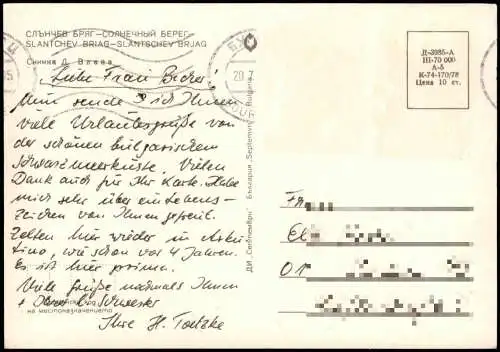 СЛЪНЧЕВ БРЯГ—СОЛНЕЧНЫЙ БЕРЕГ
SLANTCHEV BRIAG—SLANTSCHEV BRJAG
Снимка Д. Влаев
Liebe Frau Becker!
Nun sende ich Ihnen
viele Urlaubsgrüße von
der schönen bulgarischen
Schwarzmeerküste. Vielen
Dank auch für Ihr Karte. Habe
mich sehr über ein Lebens-
zeichen von Ihnen gefreut.
Zelten hier wieder in Arku-
tino, wie schon vor 4 Jahren.
Es ist hier prima.
Viele Grüße nochmals Ihnen
+
Ihre H.
на местоназначението
ДИ „Септември“ България „Septemvri“ Bulgaria
Д-3985-А
III-70 000
А-5
К-74-170/78
Цена 10 ст.
20.7
Fr